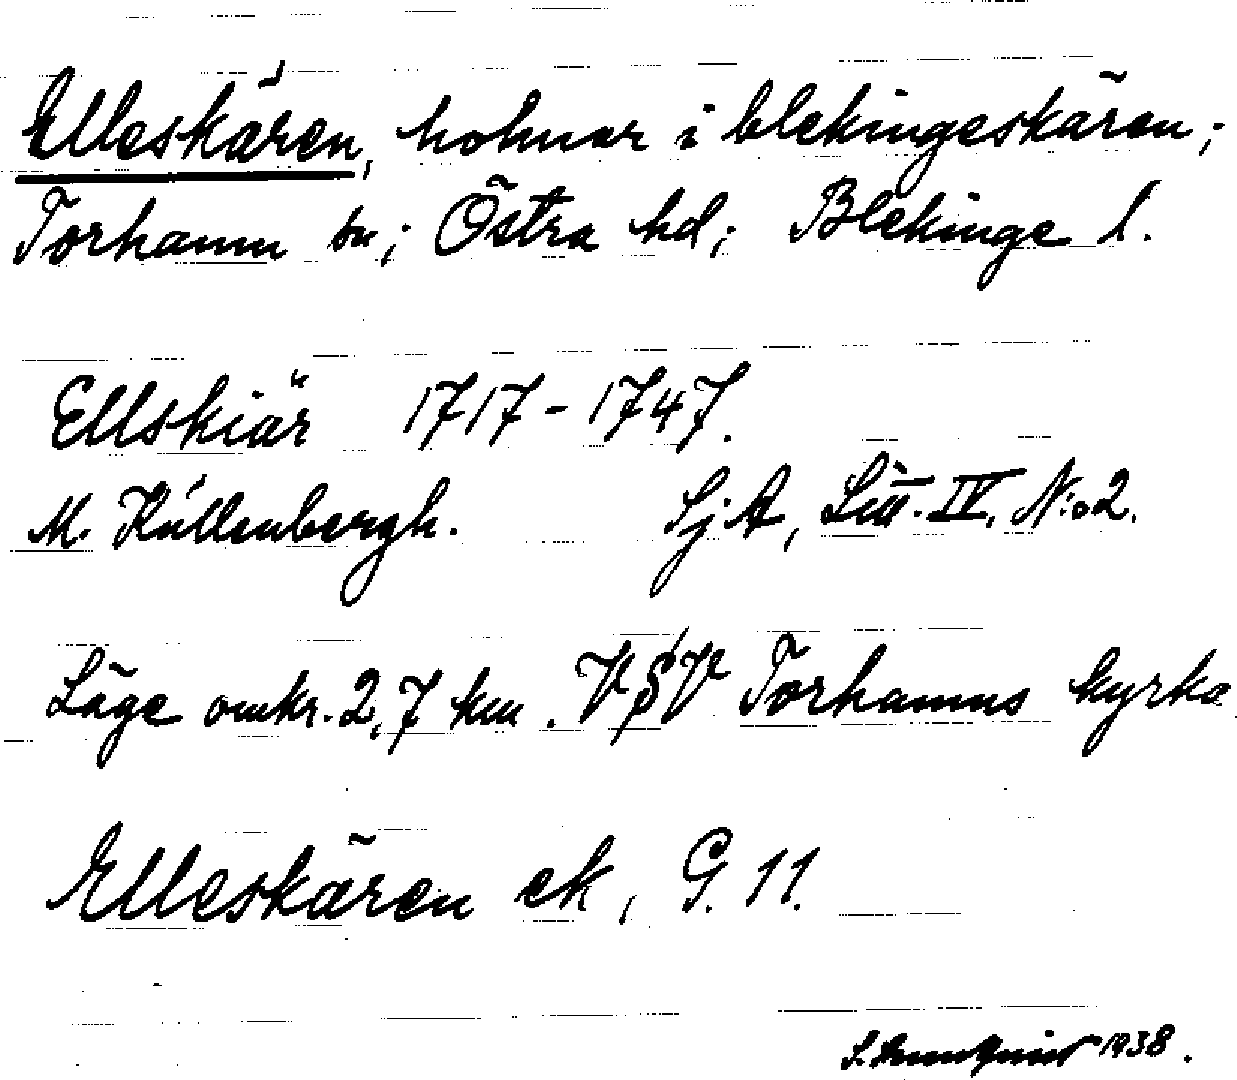 Elleskären, holmar i blekingeskären;
Torhamn sn; Östra hd; Blekinge l.
Ellskiär 1717-1747.
M. Küllenbergh. SjA, Litt. IV, N:o 2.
Läge omkr. 2,7 km. VSV Torhamns kyrka
Elleskären ek, G. 11.
1938.